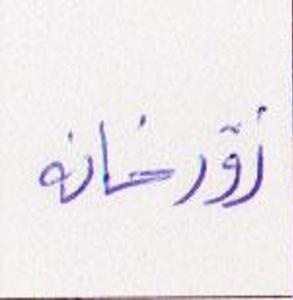 زۆرخانه